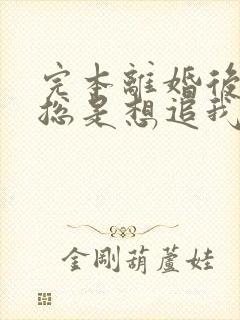 完本離婚後
總是想追我
金剛葫蘆娃